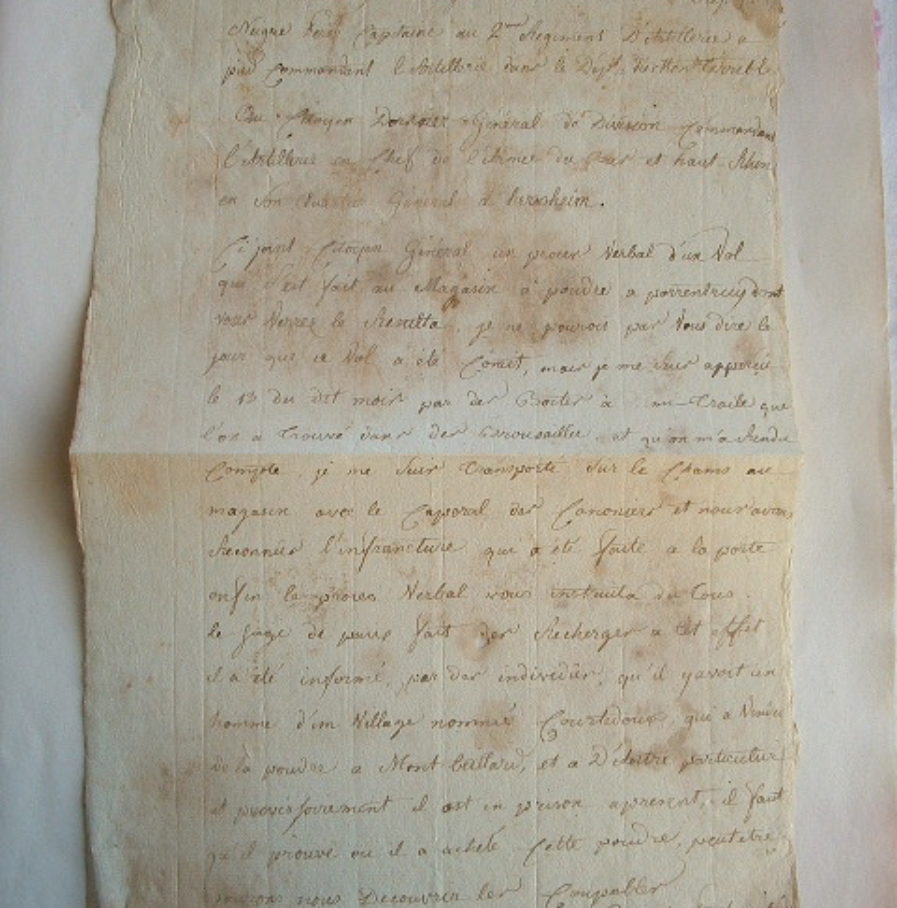 Captaine au 2me Regiment D'Artillerie a
pied Commandant l'Artillerie dans le Dept. du Mont Terrible
Au Citoyen Général de Division Commandant
l'Artillerie en Chef de l'Armée du et haut Rhin
en Son Quartier Général a
Ci joint Citoyen Général un proces Verbal d'un Vol
qui s'est fait au Magasin à poudre a porrentruy dont
vous Verrez le Resulta, je ne pouvois pas Vous dire le
jour que ce Vol a été Comet, mais je me suis apperçu
le 13 du dit mois par des Boites à mitraile que
l'on a Trouvé dans des Brousailles et qu'on m'a Rendu
Compte, je me suis Transporté Sur le Chams au
magasin avec le Caporal des Canoniers et nous avons
Reconnus l'infracture qui a été faite a la porte
enfin le proces Verbal vous instruita du Tous.
le juge de paix fait des Recherges a cet effet
il a été informé, par des individus, qu'il y avoit un
homme d'un Village nommé Courtedoux, qui a Vendu
de la poudre a Mont belliard, et a D'autre particulier
et provisoirement il est en prison apresent, il faut
qu'il prouve ou il a acheté Cette poudre, peutetre
nous Decouvrir les Coupables